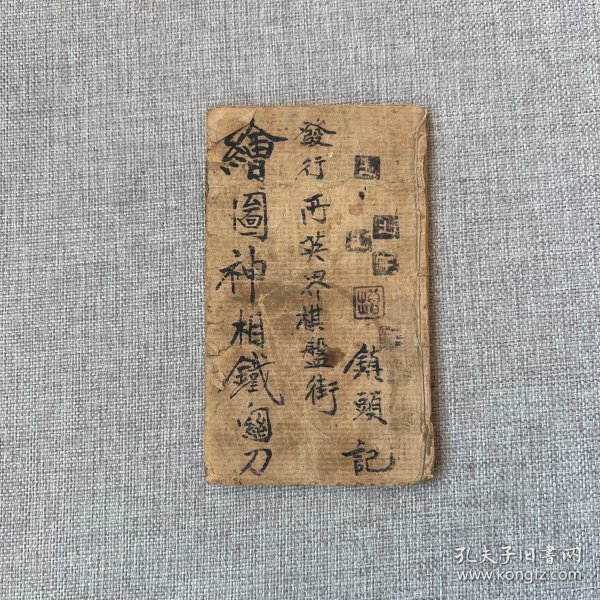 鎮頭記
發行所英界棋盤街
繪圖神相鐵關刀
孔夫子旧书网
www.kongfz.com